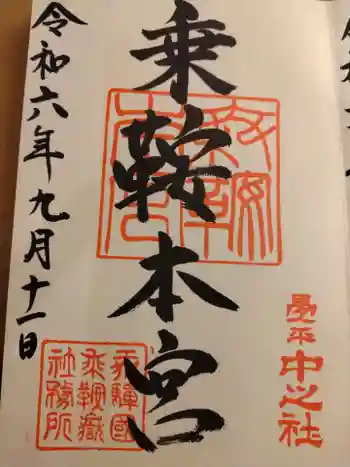 畳平
中之社
乗鞍本宮
飛驒國
乗鞍嶽
社務所
令和六年九月十一日